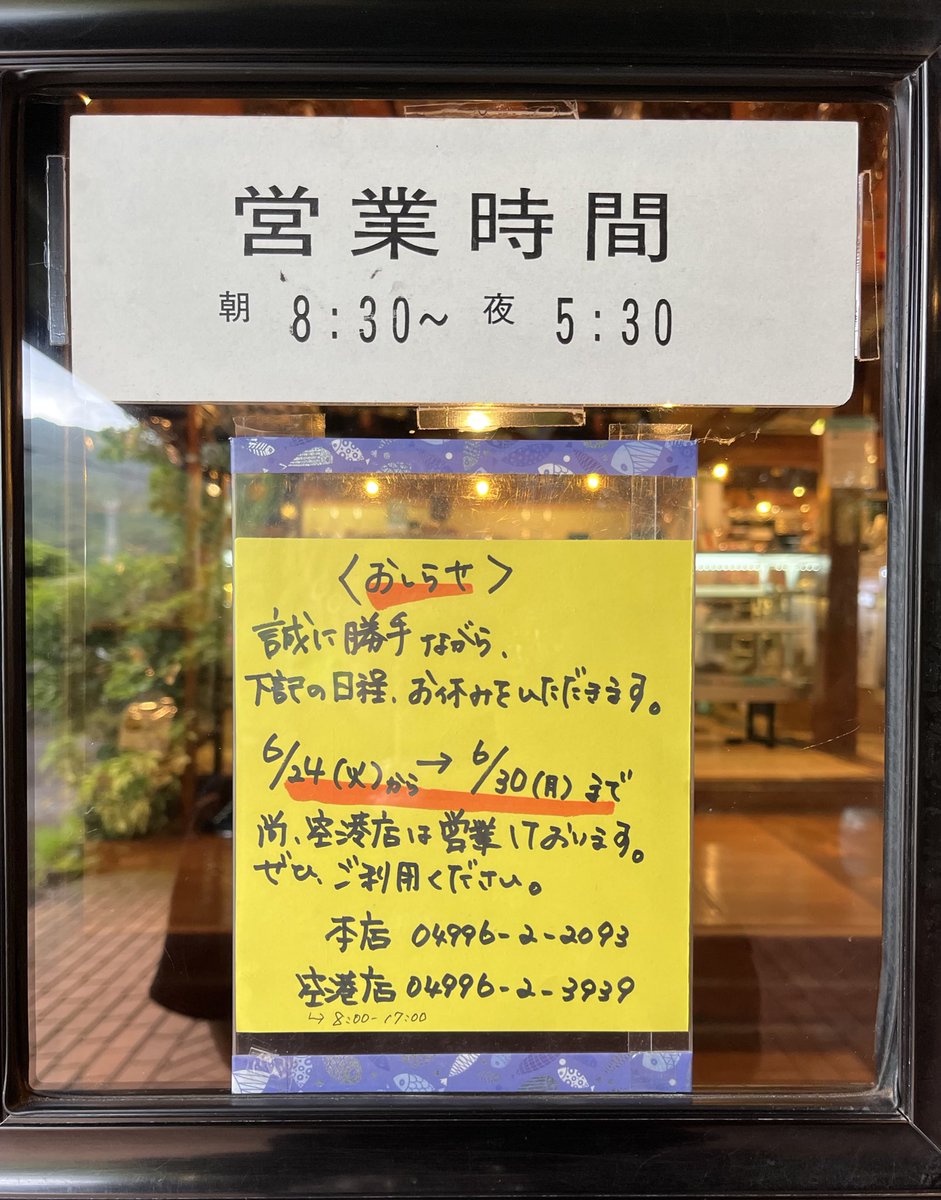 営業時間
朝 8:30～ 夜 5:30
〈おしらせ〉
誠に勝手ながら、
下記の日程、お休みをいただきます。
6/24(火)から→6/30(月)まで
尚、空港店は営業しております。
ぜひ、ご利用ください。
本店 04996-2-2093
空港店 04996-2-3939
↳ 8:00-17:00